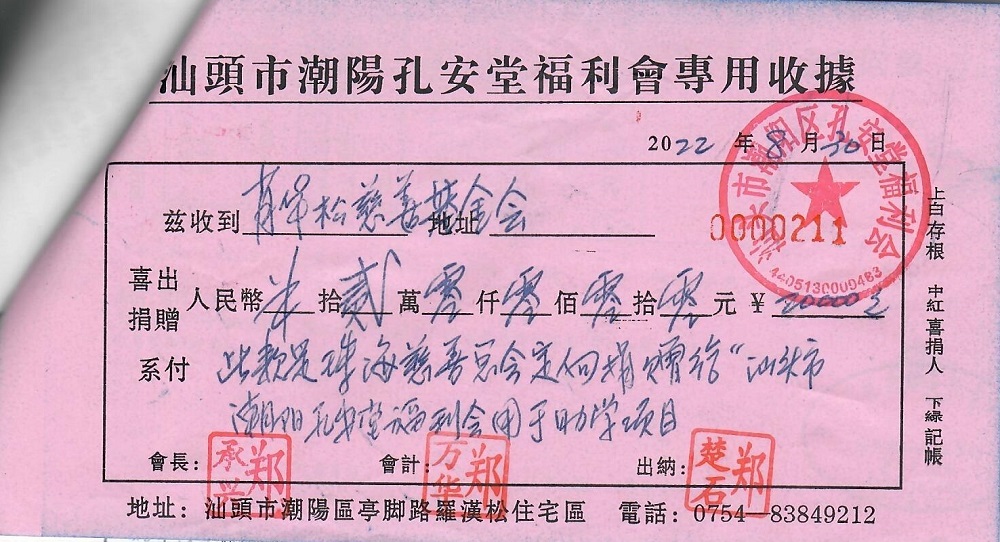 汕頭市潮陽孔安堂福利會專用收據
2022年8月30日
汕头市潮阳区孔安堂福利会
4405130009483
0000211
茲收到 松慈善基金会 地址
喜出捐贈 人民幣 拾贰萬零仟零佰零拾零元 ¥20000元
系付 此款是珠海慈善总会定向捐赠给“汕头市
潮阳孔安堂福利会用于助学项目
會長: 郑承学 會計: 郑万华 出納: 郑楚石
地址: 汕頭市潮陽區亭脚路羅漢松住宅區 電話: 0754—83849212
上白存根 中紅喜捐人 下綠記帳